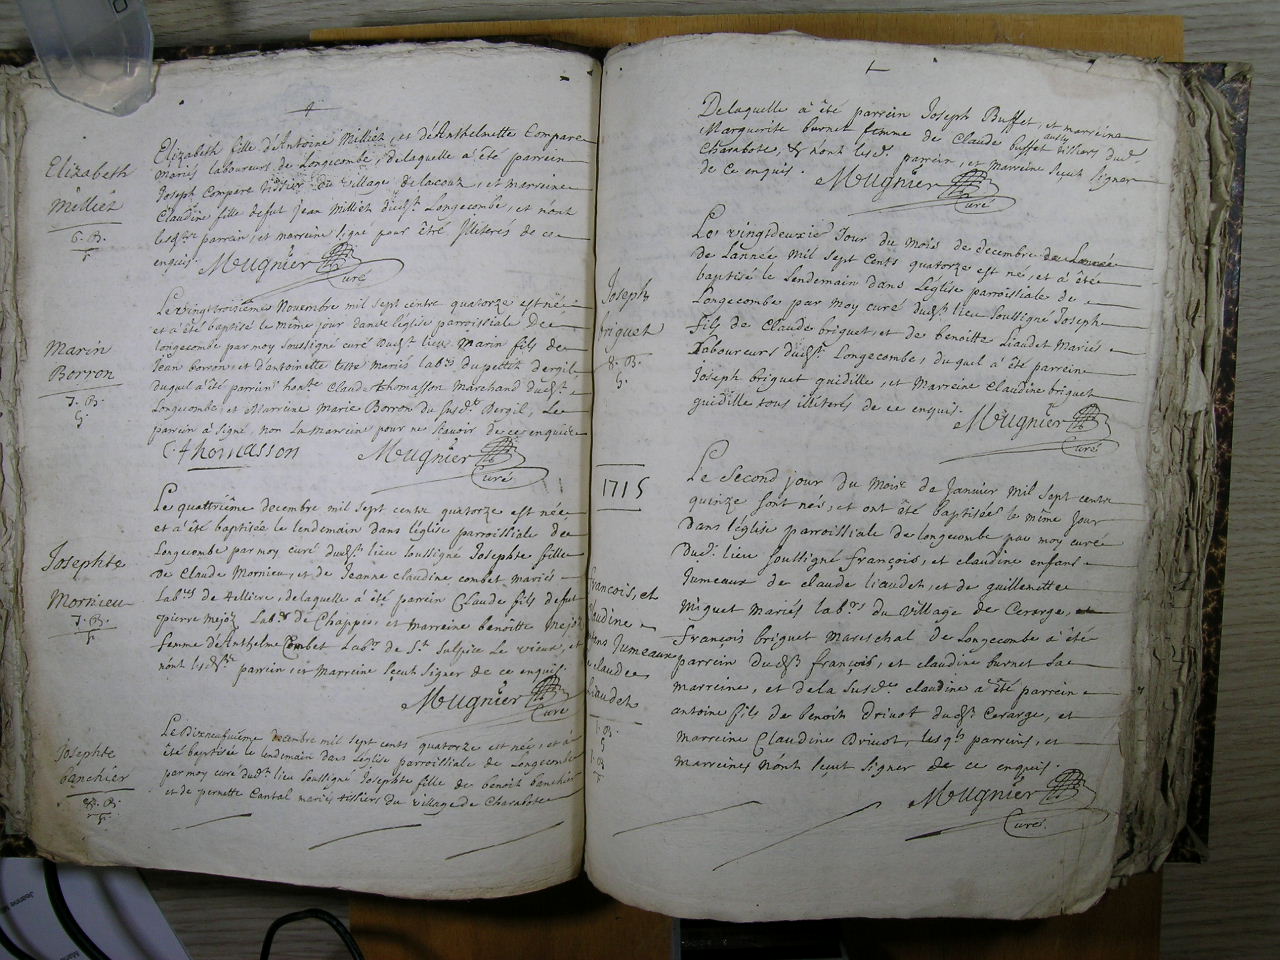 Elizabeth
Milliet
6. B.
Elizabeth fille d'Antoine Milliet, et d'Anthelmette Compare
mariés laboureurs de Longecombe, de laquelle a été parrein
Joseph Compere tissier du village de lacoux, et marreine
Claudine fille defut Jean Milliet dudt. Longecombe, et n'ont
lesdts parrein, et marreine signé pour être illiteres de ce
enquis. Mugnier
Curé
Marin
Borron
7. B.
Le vingt troisieme Novembre mil sept cents quatorze est né
et a été baptisé le même jour dans l'église parroissiale de
longecombe par moy soussigné curé dudt. lieu Marin fils de
Jean borron, et d'antoinette mariés labrs du petit dergil
duquel a été parrein hontte Claude Thomasson Marchand dudt.
Longecombe, et Marreine Marie Borron du susdt. Dergil, Le
parrein a signé, non la marreine pour ne scavoir de ce enquise
C. Thomasson Mugnier
Curé
Josephte
Mornieu
7. B.
Le quattrième decembre mil sept cents quatorze est née
et a été baptisée le lendemain dans l'église parroissiale de
Longecombe par moy curé dudt. lieu soussigné Josephte fille
de Claude Mornieu, et de Jeanne claudine combet mariés
Labrs de , de laquelle a été parrein Claude fils defut
pierre mejoz Labr. de Chappes, et marreine benoitte mejoz
femme d'Anthelme Combet Labr. de St. Sulpice Le vieux, et
n'ont lesdts. parrein, et Marreine sçeut signer de ce enquis.
Mugnier
Curé
Josephte
banchier
8. B.
Le Dixneufuième decembre mil sept cents quatorze est née, et a
été baptisée le lendemain dans l'église parroissiale de Longecombe
par moy curé dudt. lieu soussigné Josephte fille de benoit banchier
et de pernette Cantal mariés tissiers du village de Charabote
De laquelle a été parrein Joseph Buffet, et marreine
Marguerite burnet femme de Claude buffet aussy tissiers dud.
Charabote, & n'ont lesd. parrein, et Marreine sçeut signer
de ce enquis. Mugnier
Curé
Joseph
briguet
8. B.
5.
Le vingtdeuxie Jour du mois de decembre
de Lannée mil sept cents quatorze est né, et a été
baptisé le Lendemain dans L'église parroissiale de
Longecombe par moy curé dudt. lieu soussigné Joseph
fils de Claude briguet, et de benoitte Liaudet Mariés
Laboureurs dudt. Longecombe, duquel a été parrein
Joseph briguet quidille, et Marreine Claudine briguet
quidille tous illiterés de ce enquis. Mugnier
Curé
1715
françois, et
claudine
enfans Jumeaux
de claude
Liaudet
1. B.
5
1. B
Le Second jour du Mois de Janvier mil sept cents
quinze sont nés, et ont été baptisés le même jour
dans l'église parroissiale de longecombe par moy curé
dudt. lieu soussigné françois, et claudine enfans
Jumeaux de claude liaudet, et de guillemette
Miguet Mariés labrs du village de Cerarge,
françois briguet mareschal de Longecombe a été
parrein dudt. françois, et claudine burnet sa
marreine, et dela susde. claudine a été parrein
antoine fils de benoit Drivot dudt. Cerarge, et
marreine Claudine Drivot, lesqls parreins, et
marreines n'ont sçeut signer de ce enquis.
Mugnier
Curé.